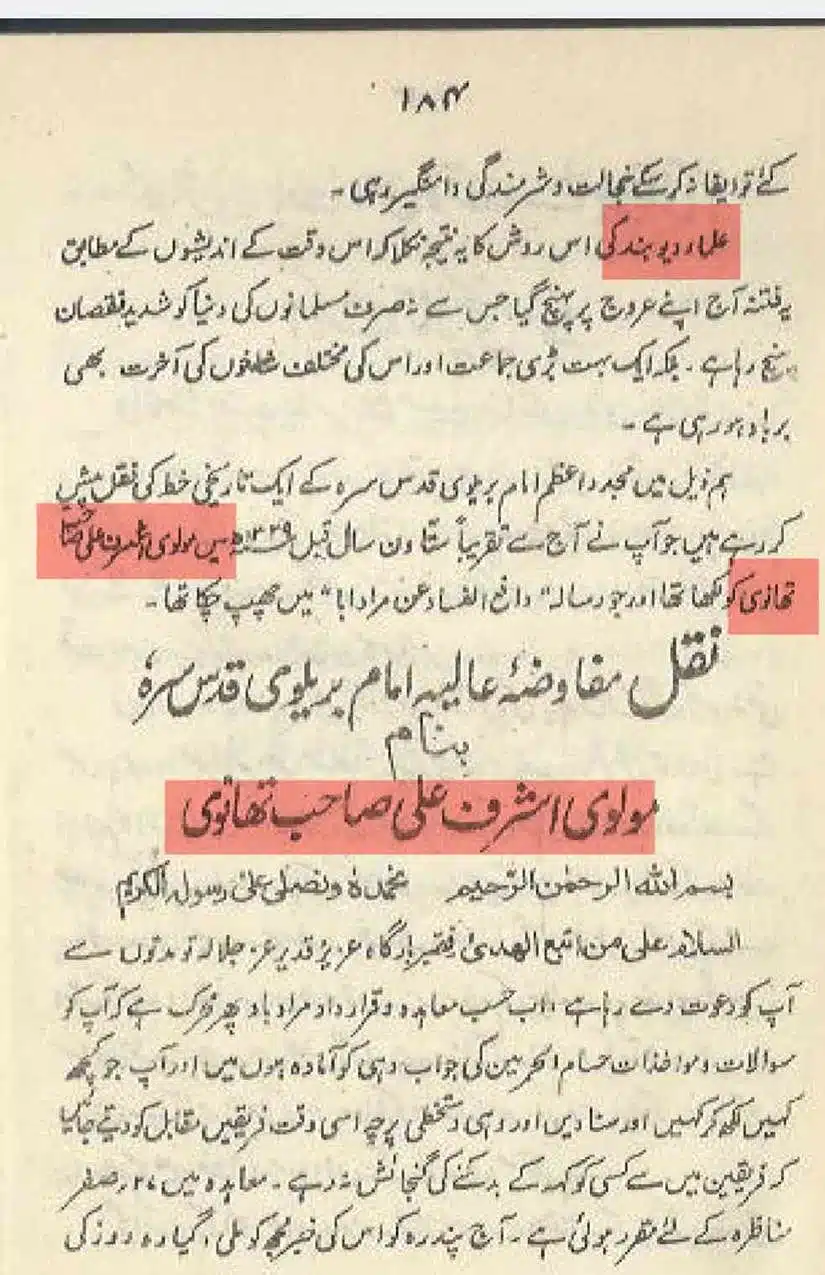 ۱۸۴
کئے تو ایفا نہ کر سکے خجالت و شرمندگی دامنگیر رہی ۔
علماء دیوبند کی اس روش کا یہ نتیجہ نکلا کہ اس وقت کے اندیشوں کے مطابق
یہ فتنہ آج اپنے عروج پر پہنچ گیا جس سے نہ صرف مسلمانوں کی دنیا کو شدید نقصان
پہنچ رہا ہے ۔ بلکہ ایک بہت بڑی جماعت اور اس کی مختلف شاخوں کی آخرت بھی
برباد ہو رہی ہے ۔
ہم ذیل میں مجدد اعظم امام بریلوی قدس سرہ کے ایک تاریخی خط کی نقل پیش
کر رہے ہیں جو آپ نے آج سے تقریباً ستاون سال قبل ۱۳۲۹ھ میں مولوی اشرف علی صاحب
تھانوی کو لکھا تھا اور جو رسالہ "دافع الفساد عن مرادآباد" میں چھپ چکا تھا ۔
نقل مفاوضۂ عالیہ امام بریلوی قدس سرہٗ
بنام
مولوی اشرف علی صاحب تھانوی
بسم اللہ الرحمٰن الرحیم نحمدہٗ ونصلی علیٰ رسولہ الکریم
السلام علی من اتبع الھدیٰ فقیر بارگاہ عزیز قدیر عز جلالہ تو مدتوں سے
آپ کو دعوت دے رہا ہے ، اب حسب معاہدہ و قرارداد مرادآباد پھر محرک ہے کہ آپ کو
سوالات و مواخذات حسام الحرمین کی جواب دہی کو آمادہ ہوں میں اور آپ جو کچھ
کہیں لکھ کر کہیں اور سنا دیں اور وہی دستخطی پرچہ اسی وقت فریقین مقابل کو دیتے جائیں
کہ فریقین میں سے کسی کو کہہ کے بدلنے کی گنجائش نہ رہے ۔ معاہدہ میں ۲۷ صفر
مناظرہ کے لئے مقرر ہوئی ہے ۔ آج پندرہ کو اس کی خبر مجھ کو ملی ، گیارہ روز کی